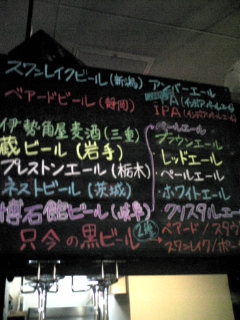 スワンレイクビール(新潟) アンバーエール
IPA(インディアペールエール)
ベアードビール(静岡) IPA(インディアペールエール)
ペールエール
伊勢角屋麦酒(三重) ブラウンエール
蔵ビール(岩手) レッドエール
プレストンエール(栃木) ペールエール
ネストビール(茨城) ホワイトエール
博石館ビール(岐阜) クリスタルエール
只今の黒ビール 2種 ベアード/スタウ
スワンレイク/ポー